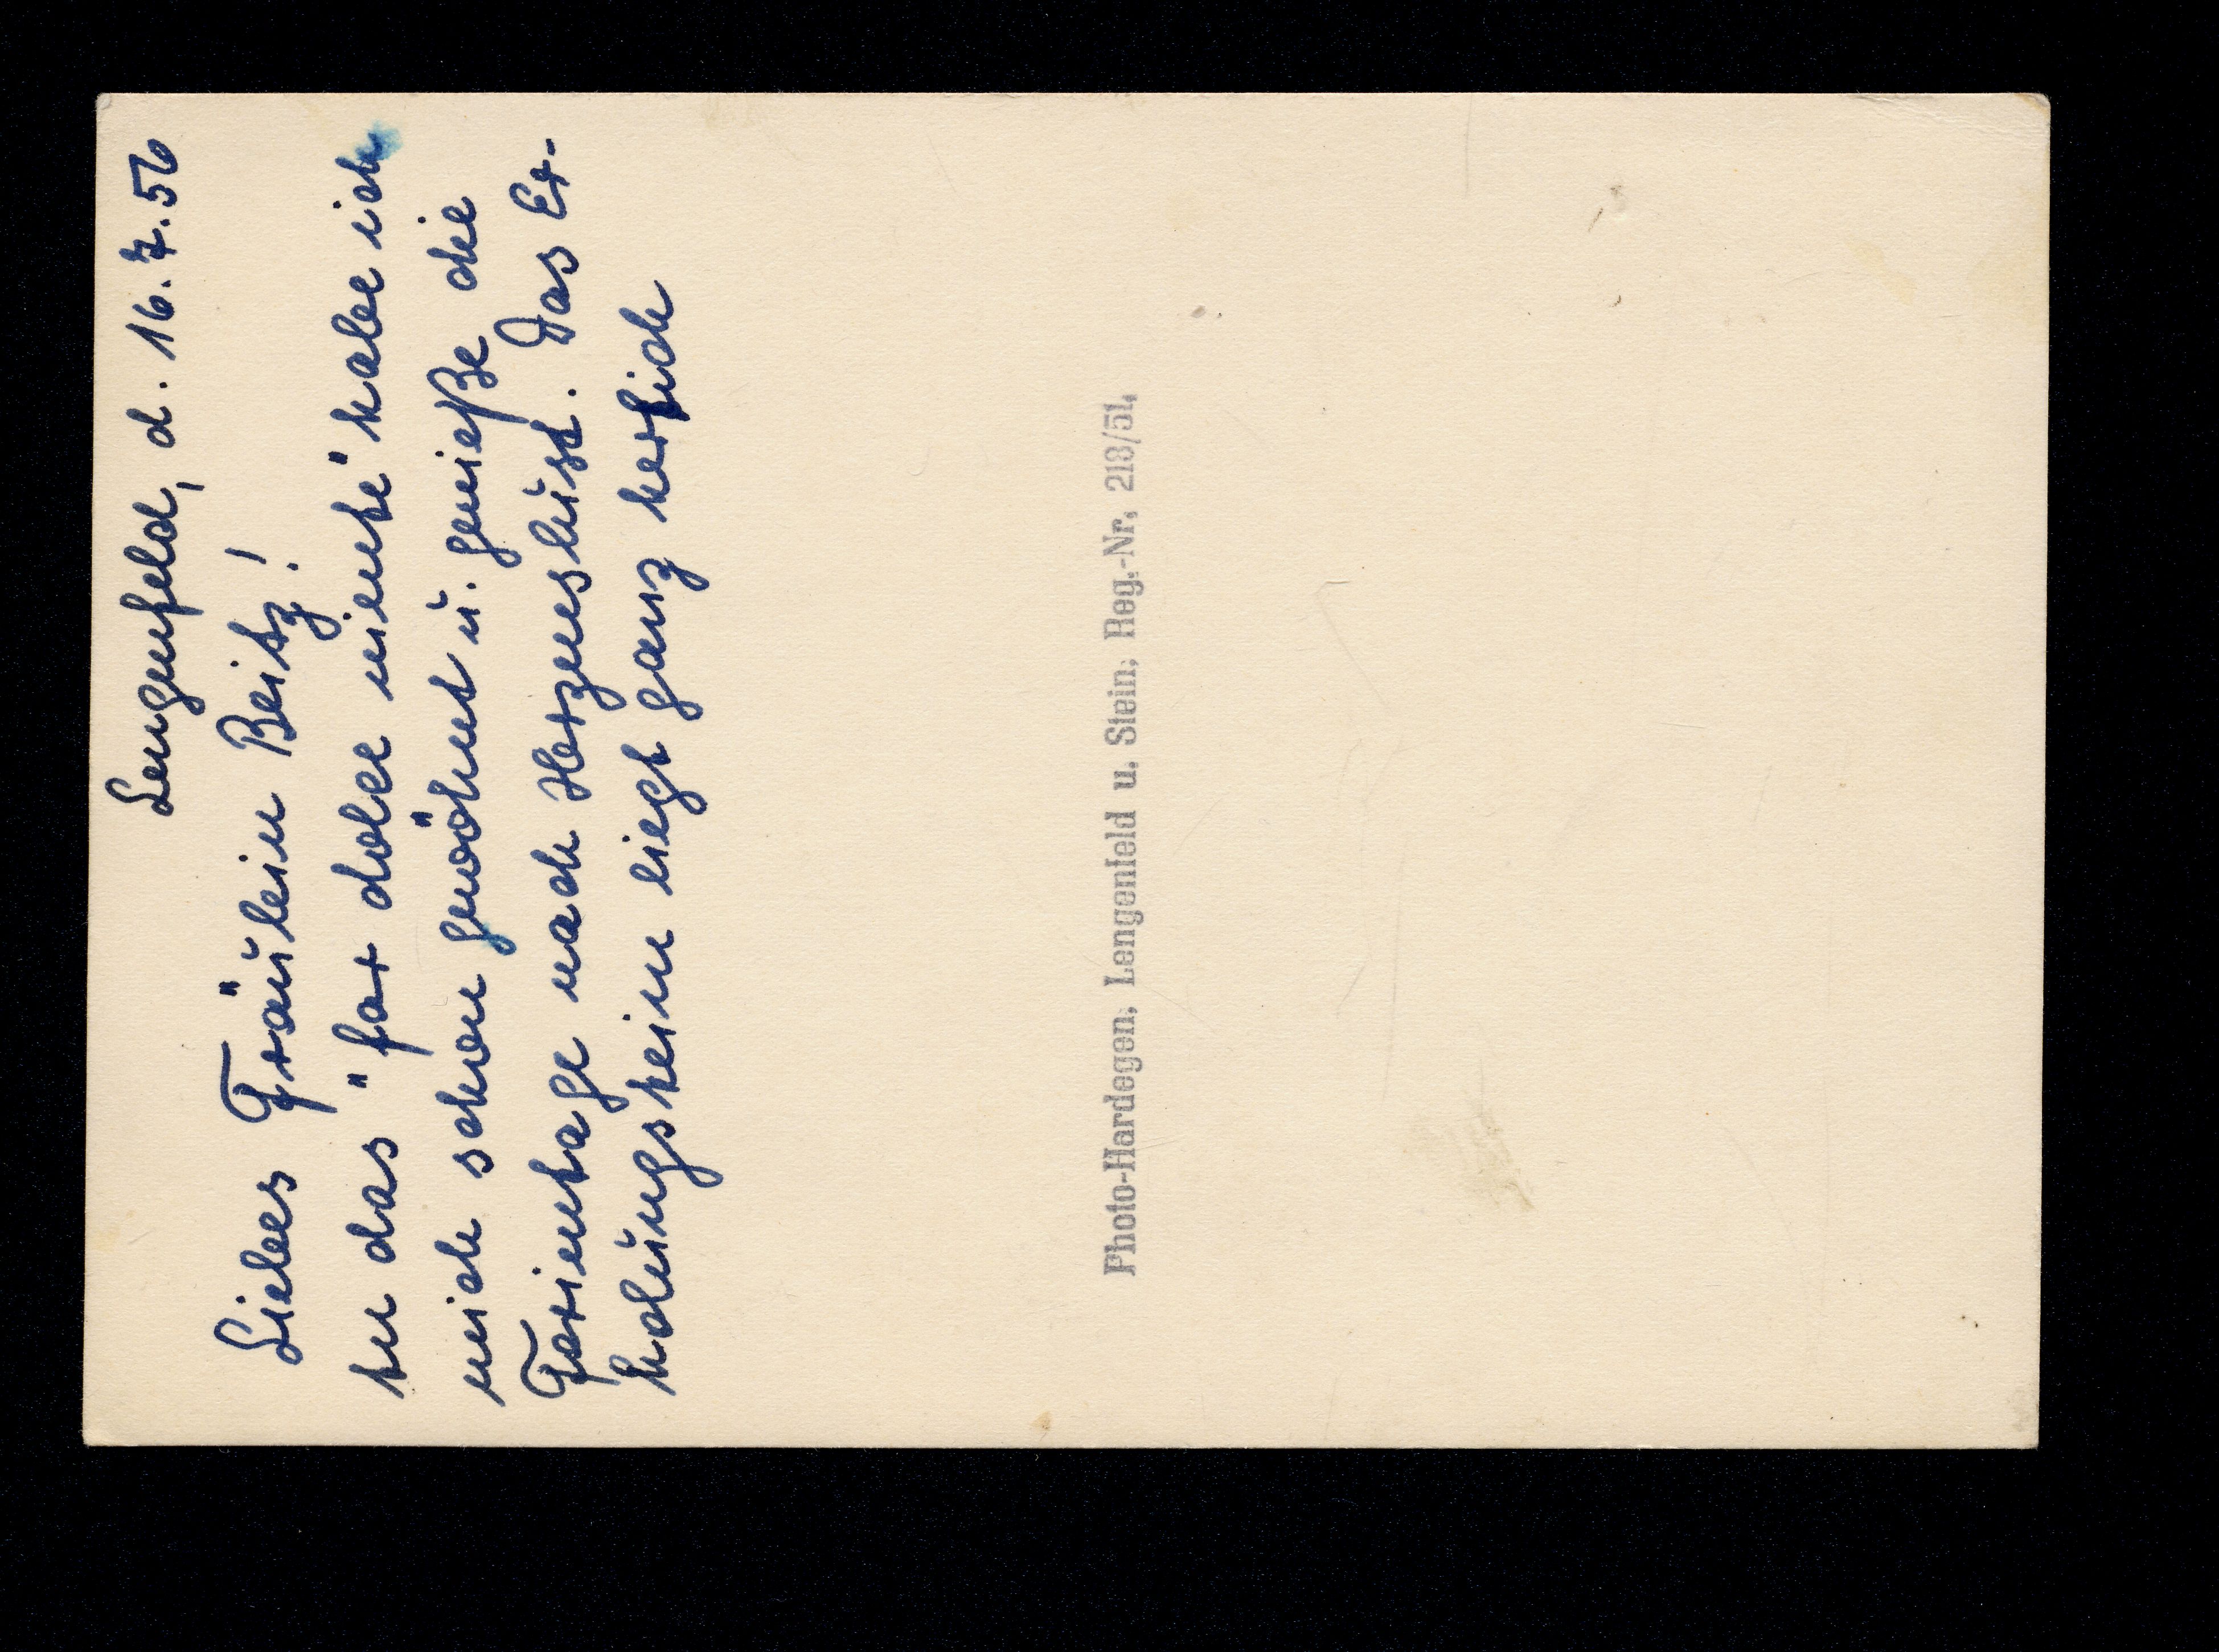 Lengenfeld, d. 16.7.56
Liebes Fräulein Beitz!
An das "far dolce niente" habe ich
mich schon gewöhnt u. genieße die
Ferientage nach Herzenslust. Das Er-
holungsheim liegt ganz herrlich
Photo-Hardegen, Lengenfeld u. Stein, Reg.-Nr. 218/51,